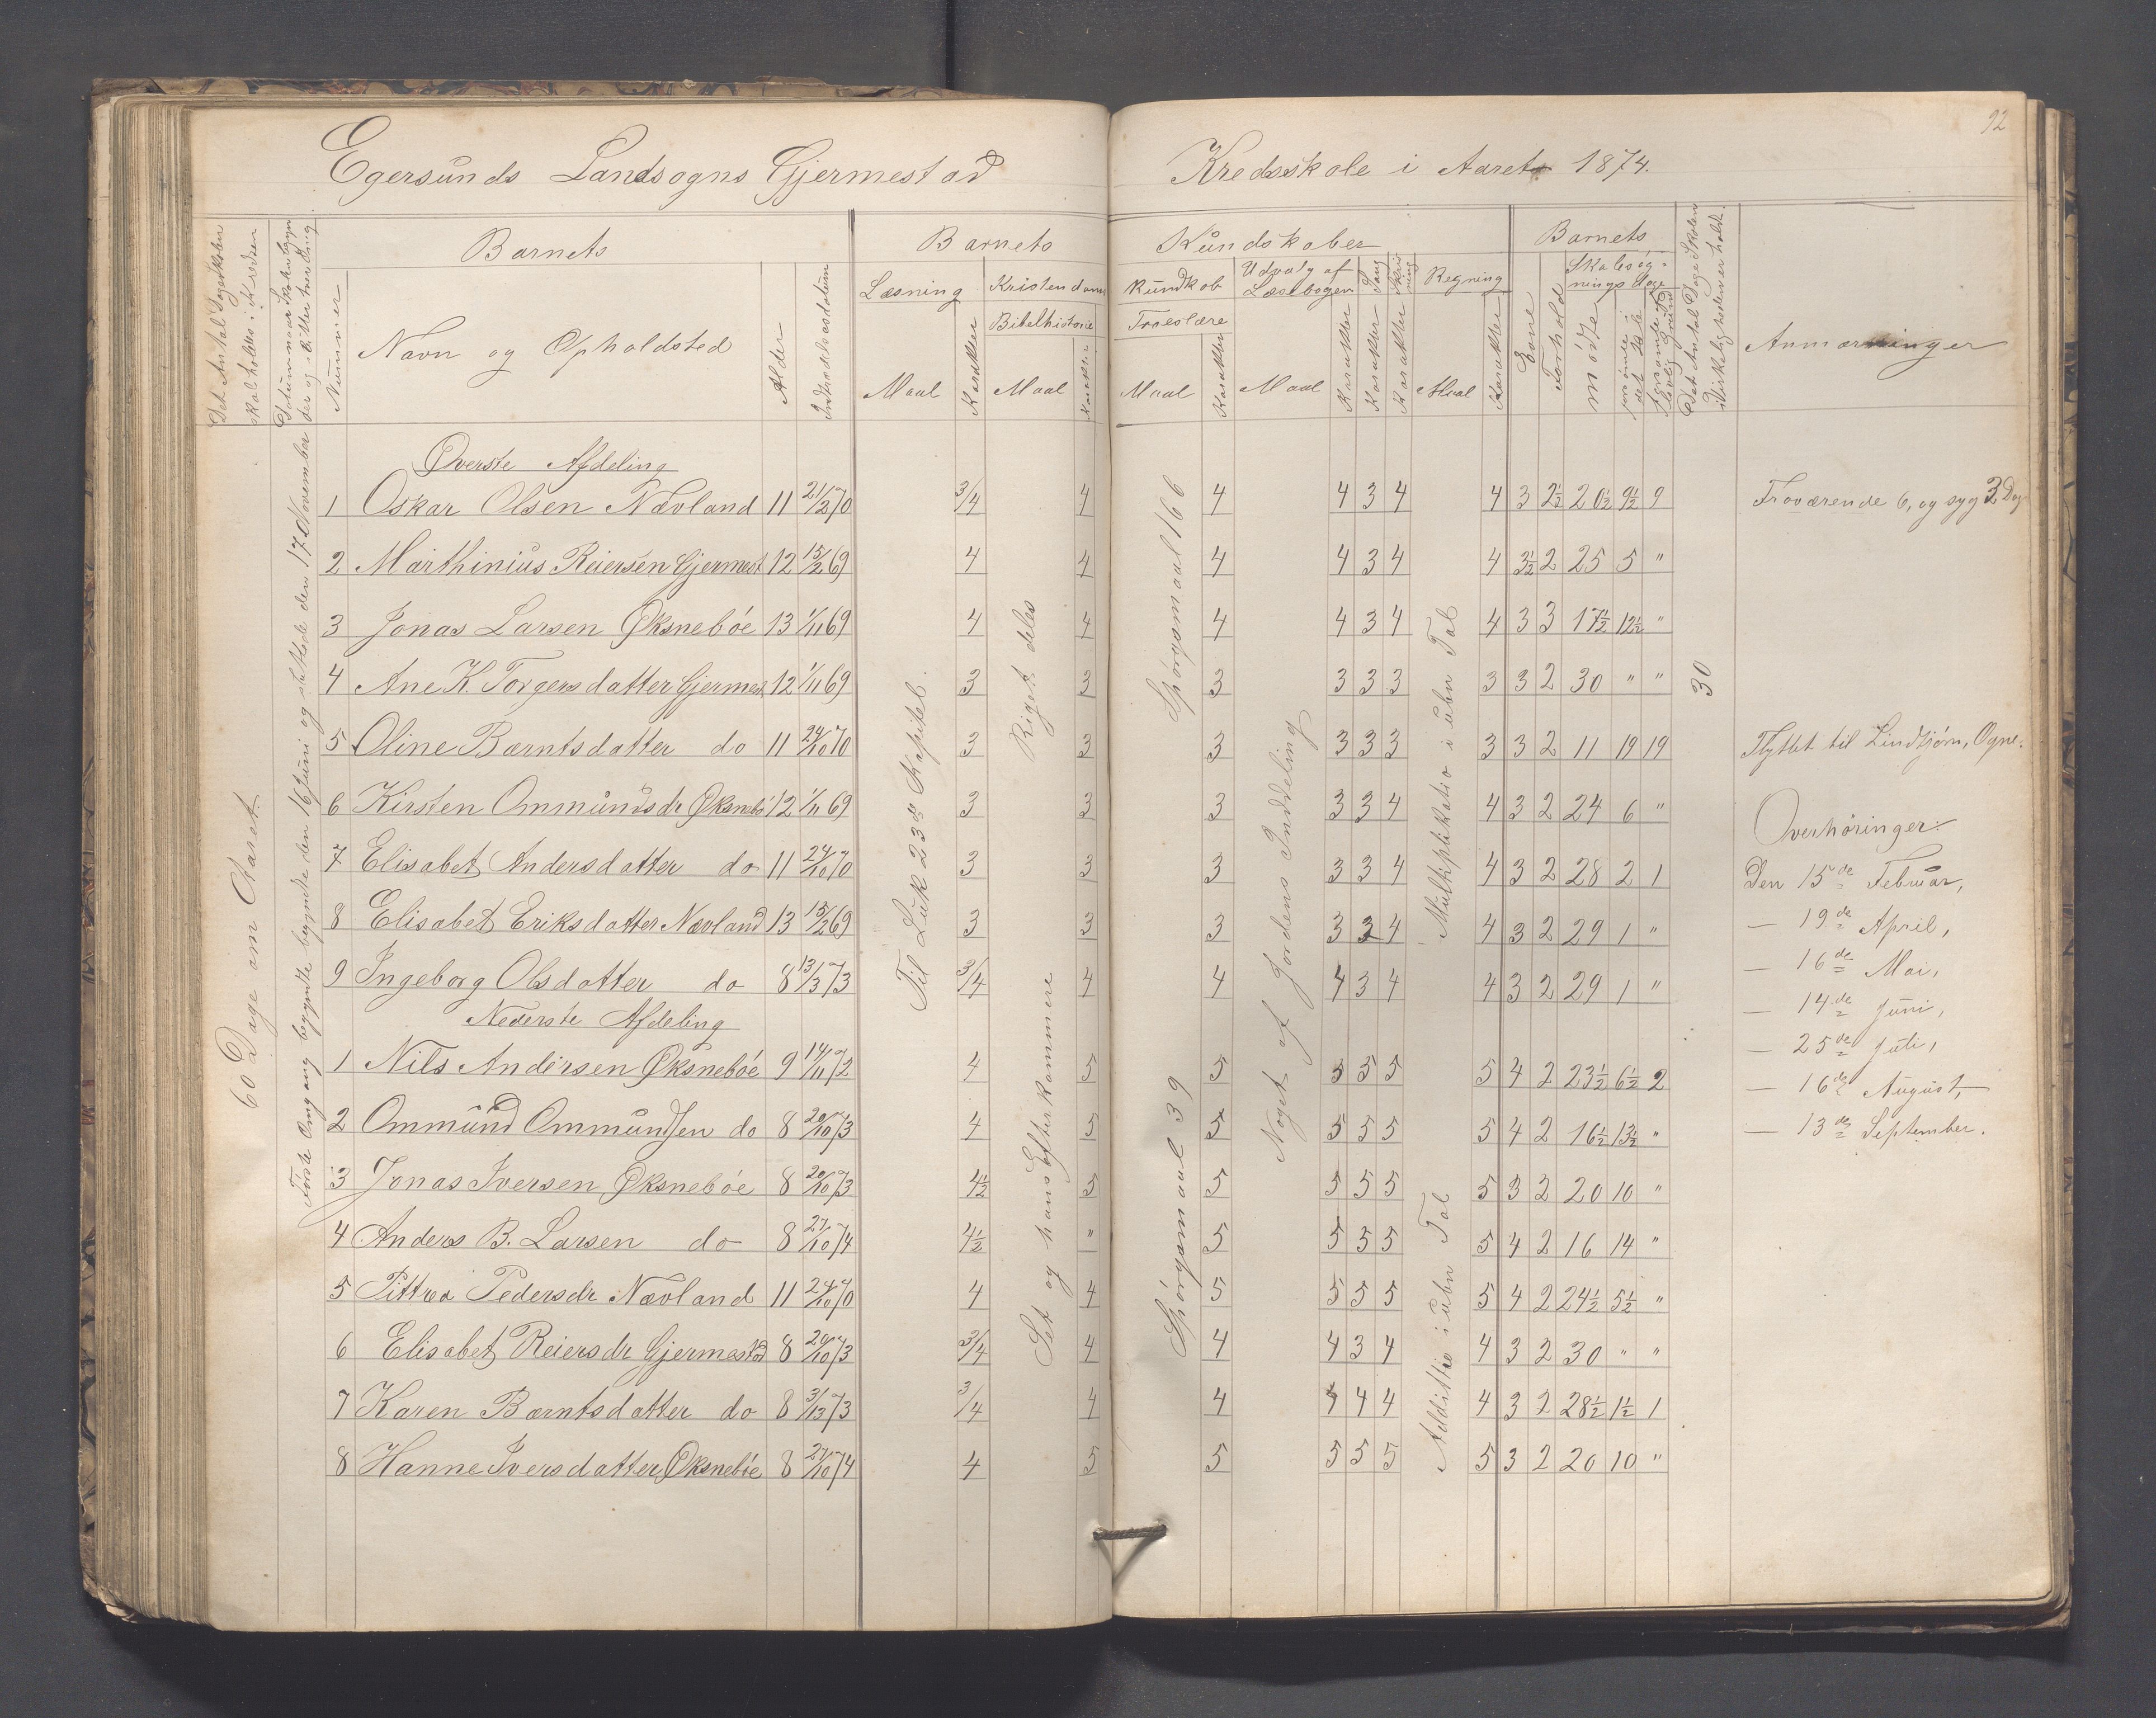 92
Egersunds Landsogns Gjermestad Kredsskole i Aaret 1874.
Det Antal Dage Skolen skal holdes i Kredsen
Nummer
Barnets
Navn og Opholdsted
Alder
Indtrædelsesdatum
Barnets Kundskaber
Læsning
Maal
Karakter
Kristendomskundskab
Bibelhistorie
Maal
Karakter
Troeslære
Maal
Karakter
Udvalg af Læsebogen
Maal
Karakter
Sang
Karakter
Skrivning
Karakter
Regning
Maal
Karakter
Barnets
Evne
Forhold
Skolesøgningsdage
mødte
forsømte i det Hele
Det Antal Dage Skolen i Virkeligheden er holdt.
Anmærkninger
60 Dage om Aaret.
Første Omgang begyndte den 16 Juni og sluttede den 17de November
Til Luk. 23de Kapitel.
Riget deles
Set og hans Efterkommere
Spørgsmaal 166
Spørgsmaal 39
Noget af Jordens Inddeling
Multiplikatio i ubn Tal
Additio i ubn Tal
30
Øverste Afdeling
1 Oskar Olsen Nævland 11 21/2 70 3/4 4 4 4 3 4 4 3 2½ 20½ 9½ 9 Fraværende 6, og syg 3 Dage
2 Marthinius Reiersen Gjermest 12 15/2 69 4 4 4 4 3 4 4 3½ 2 25 5 "
3 Jonas Larsen Øksnebøe 13 1/11 69 4 4 4 4 3 4 4 3 3 17½ 12½ "
4 Ane K. Torgersdatter Gjermest 12 1/11 69 3 3 3 3 3 3 3 3 2 30 " "
5 Oline Barntsdatter do 11 24/10 70 3 3 3 3 3 3 3 3 2 11 19 19 Flyttet til Lindtjørn, Ogne.
6 Kirsten Ommundsdr Øksnebø 12 1/11 69 3 3 3 3 3 4 4 3 2 24 6 "
7 Elisabet Andersdatter do 11 24/10 70 3 3 3 3 3 4 4 3 2 28 2 1
8 Elisabet Eriksdatter Nævland 13 15/2 69 3 3 3 3 3 4 4 3 2 29 1 "
9 Ingeborg Olsdatter do 8 13/3 73 3/4 4 4 4 3 4 4 3 2 29 1 "
Nederste Afdeling
1 Nils Andersen Øksnebøe 9 14/11 72 4 5 5 5 5 5 5 4 2 23½ 6½ 2
2 Ommund Ommundsen do 8 20/10 73 4 5 5 5 5 5 5 4 2 16½ 13½ "
3 Jonas Iversen Øksnebøe 8 20/10 73 4½ 5 5 5 5 5 5 3 2 20 10 "
4 Anders B. Larsen do 8 27/10 74 4½ " 5 5 5 5 5 4 2 16 14 "
5 Pittrea Pedersdr Nævland 11 24/10 70 4 4 5 5 5 5 5 4 2 24½ 5½ "
6 Elisabet Reiersdr Gjermestad 8 20/10 73 3/4 4 4 4 3 4 4 3 2 30 " "
7 Karen Barntsdatter do 8 3/13 73 3/4 4 4 4 4 4 4 3 2 28½ 1½ 1
8 Hanne Iversdatter Øksnebøe 8 27/10 74 4 5 5 5 5 5 5 3 2 20 10 "
Overhøringer:
Den 15de Februar,
— 19de April,
— 16de Mai,
— 14de Juni,
— 25de Juli,
— 16de August,
— 13de September.